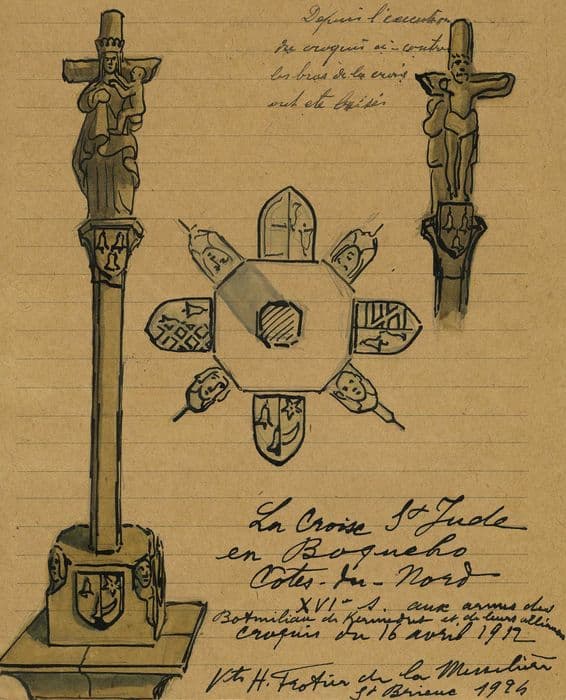 Depuis l'execution
du croquis ci-contre
les bras de la croix
ont été brisés
La Croise St Jude
en Boqueho
Côtes-du-Nord
XVIe S. aux armes des
Botmiliau de Kermedret et de leurs alliances
croquis du 16 avril 1912
Vte H. Frotier de la Messelière
St Brieuc 1924